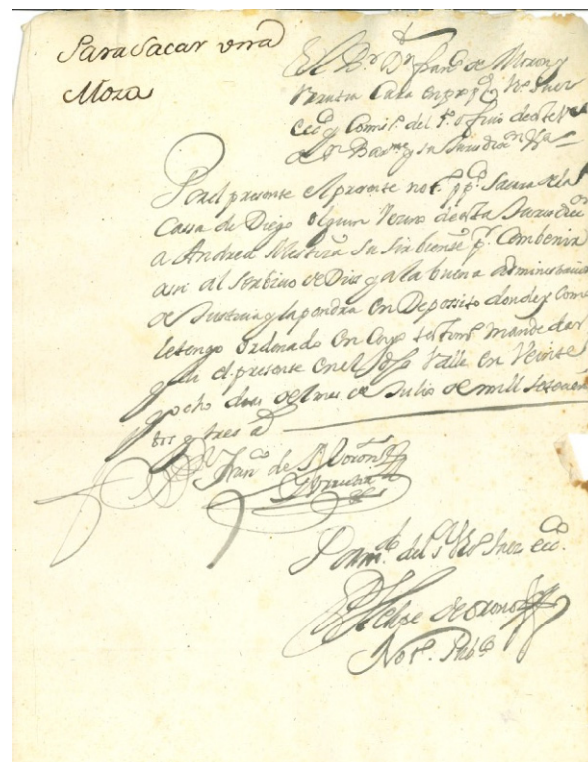 Para Sacar vna
Moza
El Br Dn Franco de Moron y
Cura en pp Vo Juez
Ecco y Comiso del So Officio deste Ve
de Sn Barme y su Jurisdicon Ha
Por el presente el presente Noto ppo Sacara de la
Cassa de Diego olguin Vecino desta Jurisdicon
a Andrea Mestiza Su Sirbiente pr Combenir
assi al Serbicio de Dios y a la buena Administracion
de Justicia y la pondra en Deposito donde y como
le tengo ordenado en cuyo testimo mande dar
y di el presente en el dho Valle en Veinte
y ocho dias del mes de Julio de mill setecien
tos y tres as
Franco de Moron
Por mdo del Sr Vo Juez ecco.
Phelipe de
Noto. Pubco